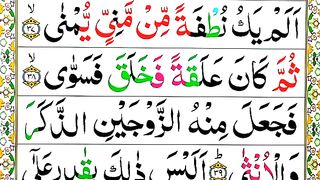 اَلَمْ يَكُ نُطْفَةً مِّنْ مَّنِىٍّ يُّمْنٰى ۙ‏﴿۳۷﴾
ثُمَّ كَانَ عَلَقَةً فَخَلَقَ فَسَوّٰى ۙ‏﴿۳۸﴾
فَجَعَلَ مِنْهُ الزَّوْجَيْنِ الذَّكَرَ
وَالْاُنْثٰى ؕ‏﴿۳۹﴾ اَلَيْسَ ذٰلِكَ بِقٰدِرٍ عَلٰٓى